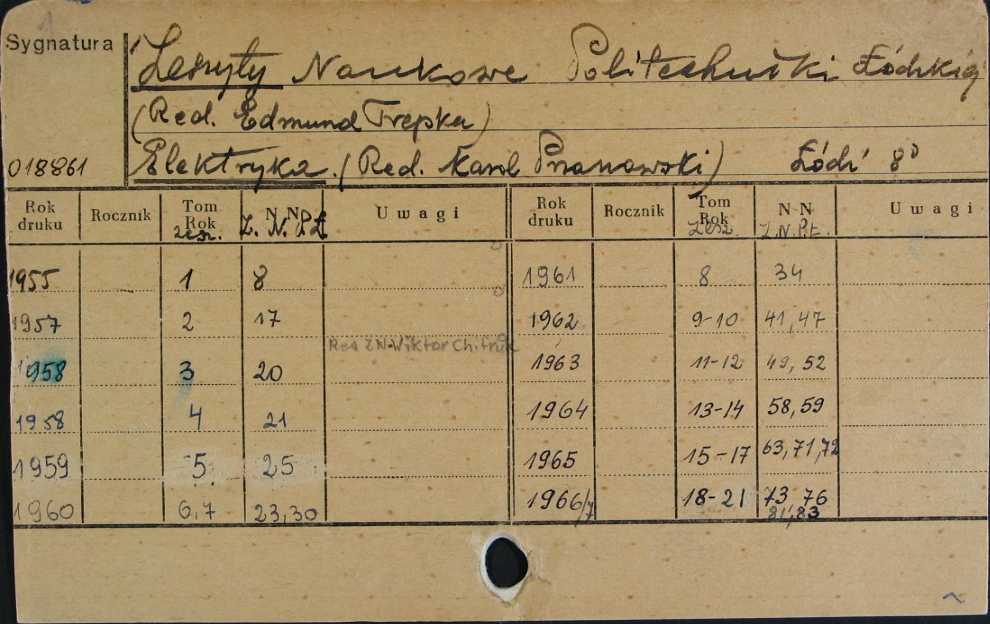 Sygnatura
Zeszyty Naukowe Politechniki Łódzkiej
(Red. Edmund Trepka)
018861 Elektryka. (Red. Karol Przanowski) Łódź 8°
Rok druku Rocznik Tom Rok zesz. N N Z. N. P.Ł Uwagi Rok druku Rocznik Tom Rok Zesz. N N Z.N.P.Ł. Uwagi
1955 1 8 1961 8 34
1957 2 17 1962 9-10 41,47
Red ZN-Wiktor
1958 3 20 1963 11-12 49, 52
1958 4 21 1964 13-14 58,59
1959 5 25 1965 15-17 63,71,72
1960 6,7 23,30 1966/7 18-21 73, 76
81,83